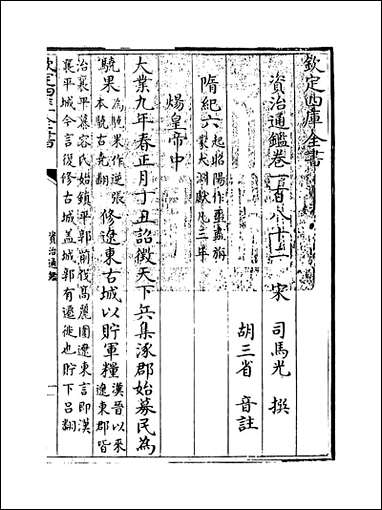 欽定四庫全書
資治通鑑卷一百八十二　宋　司馬光　撰
胡三省　音註
隋紀六　起昭陽作噩盡旃
蒙大淵獻凡三年
煬皇帝中
大業九年春正月丁丑詔徵天下兵集涿郡始募民為
驍果　為驍果作逆張
本驍古堯翻　修遼東古城以貯軍糧　漢晉以来
遼東郡皆
治襄平慕容氏始鎮平郭前伐髙麗圍遼東言即漢
襄平城今言復修古城蓋城郭有遷徙也貯丁吕翻
欽定四庫全書
資治通鑑